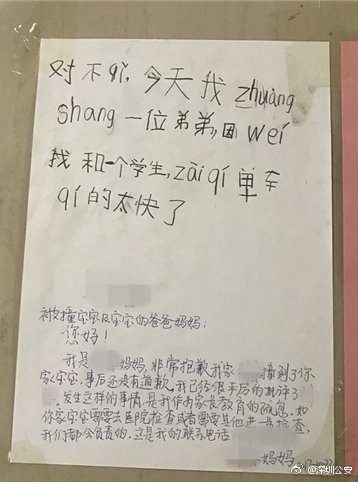 对不qǐ,今天我 zhuàng
shang 一位弟弟,因 wéi
我和一个学生,zài qí 单车
qí 的太快了
被撞宝宝及宝宝的爸爸妈妈:
您好!
我是 妈妈,非常抱歉我家 撞到了你
家宝宝,事后还没有道歉。我已给很严厉的批评了
。发生这样的事情是我作为家长教育的疏忽。如
你家宝宝需要去医院检查或者需要其他进一步检查,
我们都会负责的。这是我的联系电话
妈妈
@深圳公安